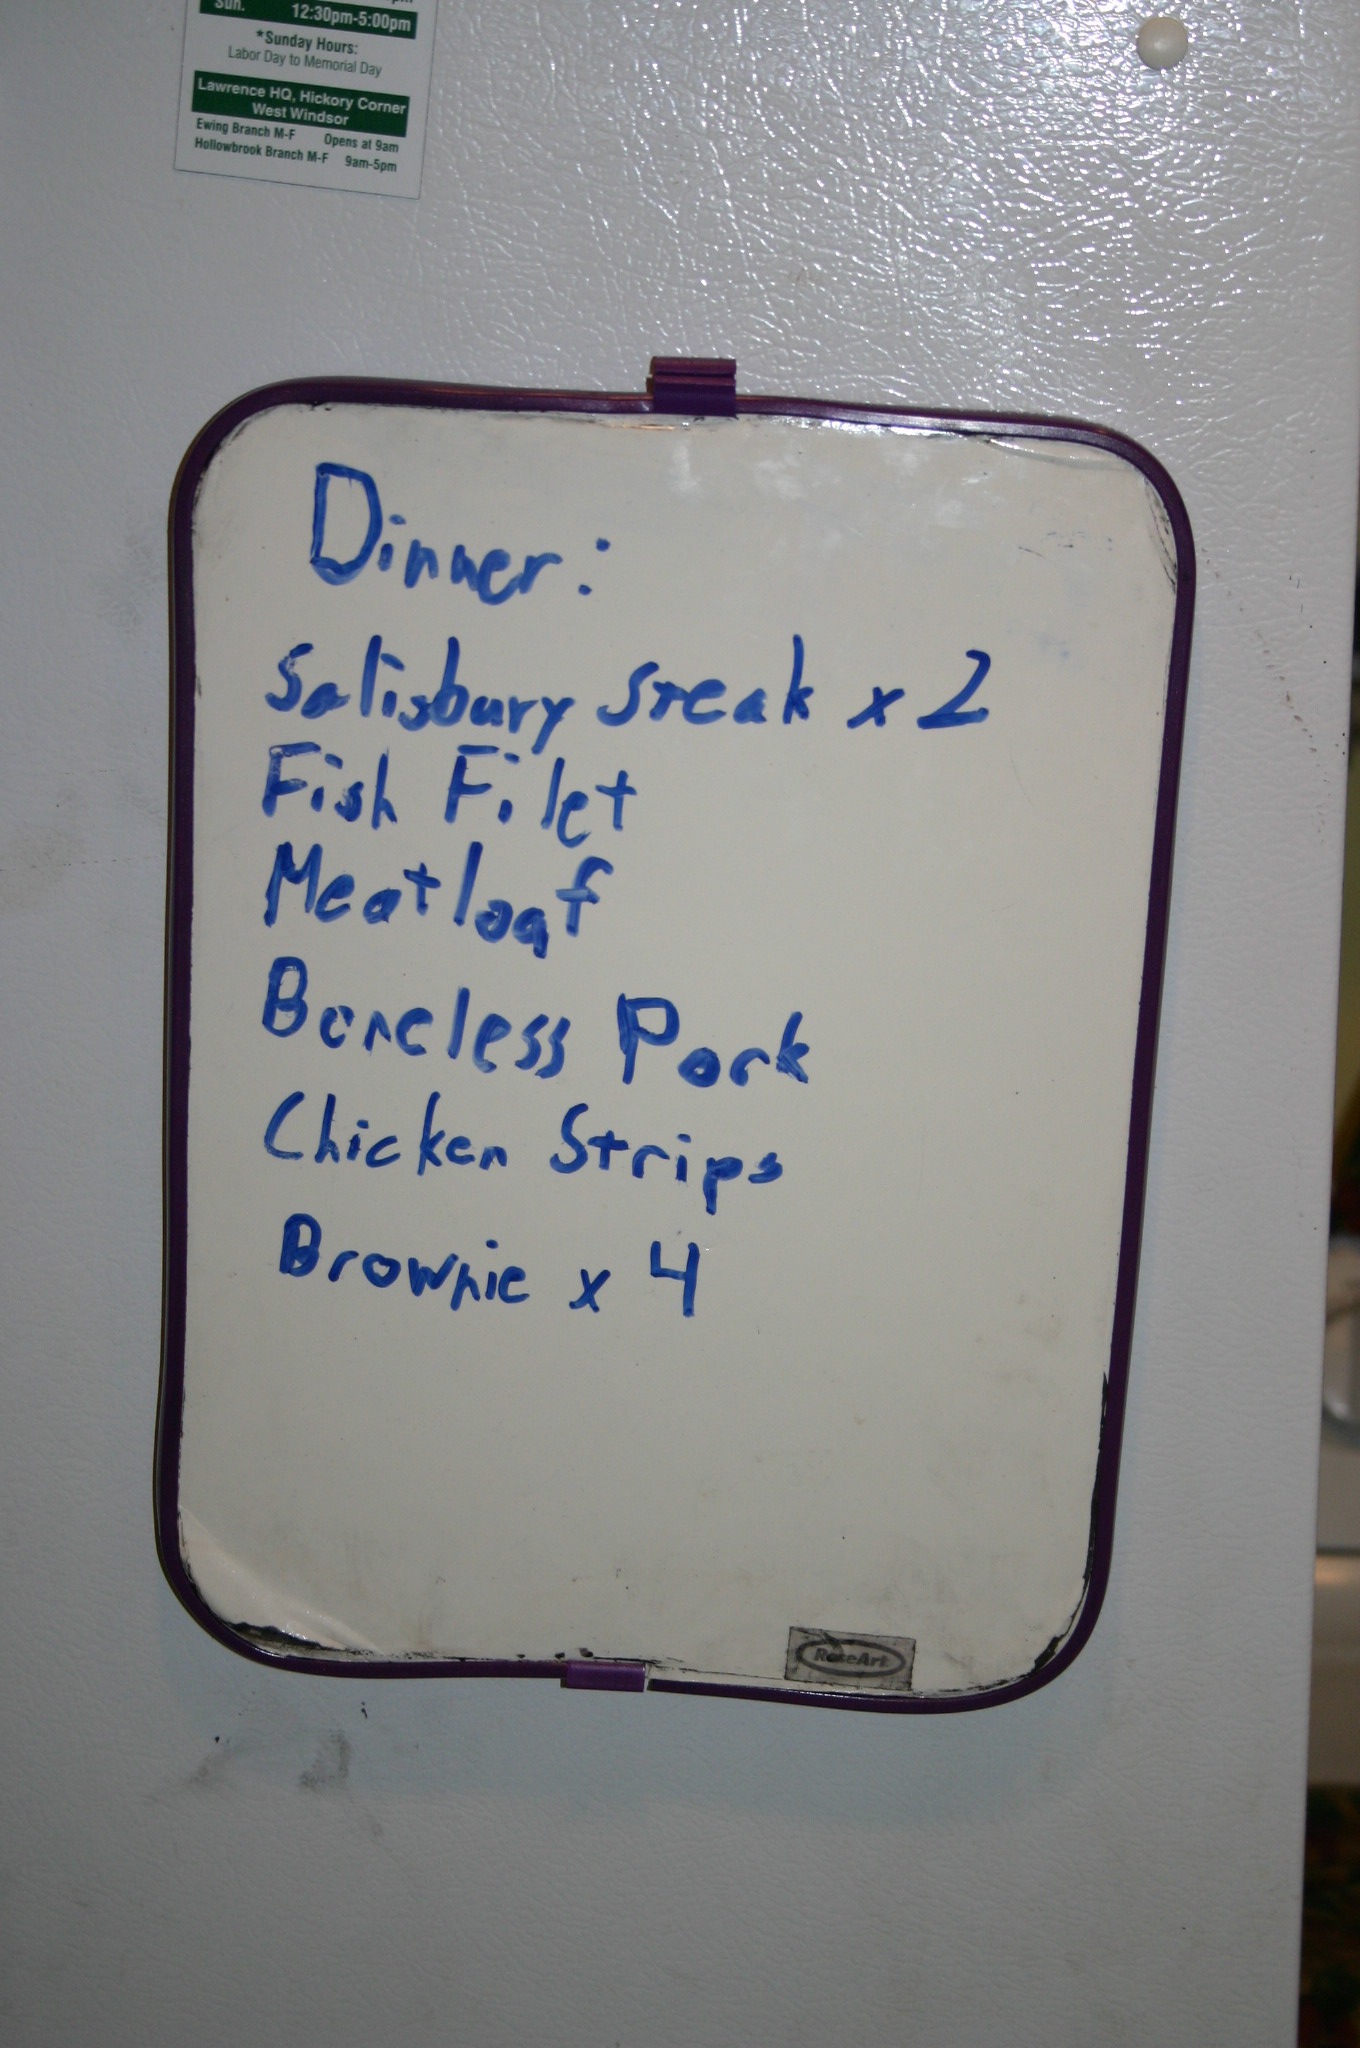 Sun. 12:30pm-5:00pm
*Sunday Hours:
Labor Day to Memorial Day
Lawrence HQ, Hickory Corner
West Windsor
Ewing Branch M-F Opens at 9am
Hollowbrook Branch M-F 9am-5pm
Dinner:
Salisbury Steak x 2
Fish Filet
Meatloaf
Boneless Pork
Chicken Strips
Brownie x 4
RoseArt